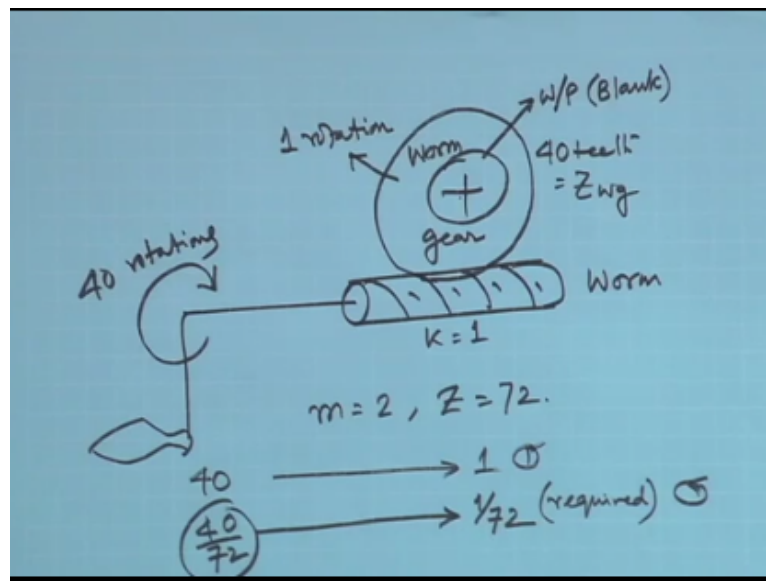 W/P (Blank)
1 rotation
Worm
40 teeth
= Zwg
gear
40 rotations
Worm
K = 1
m = 2 , Z = 72.
40 → 1
40/72 → 1/72 (required)